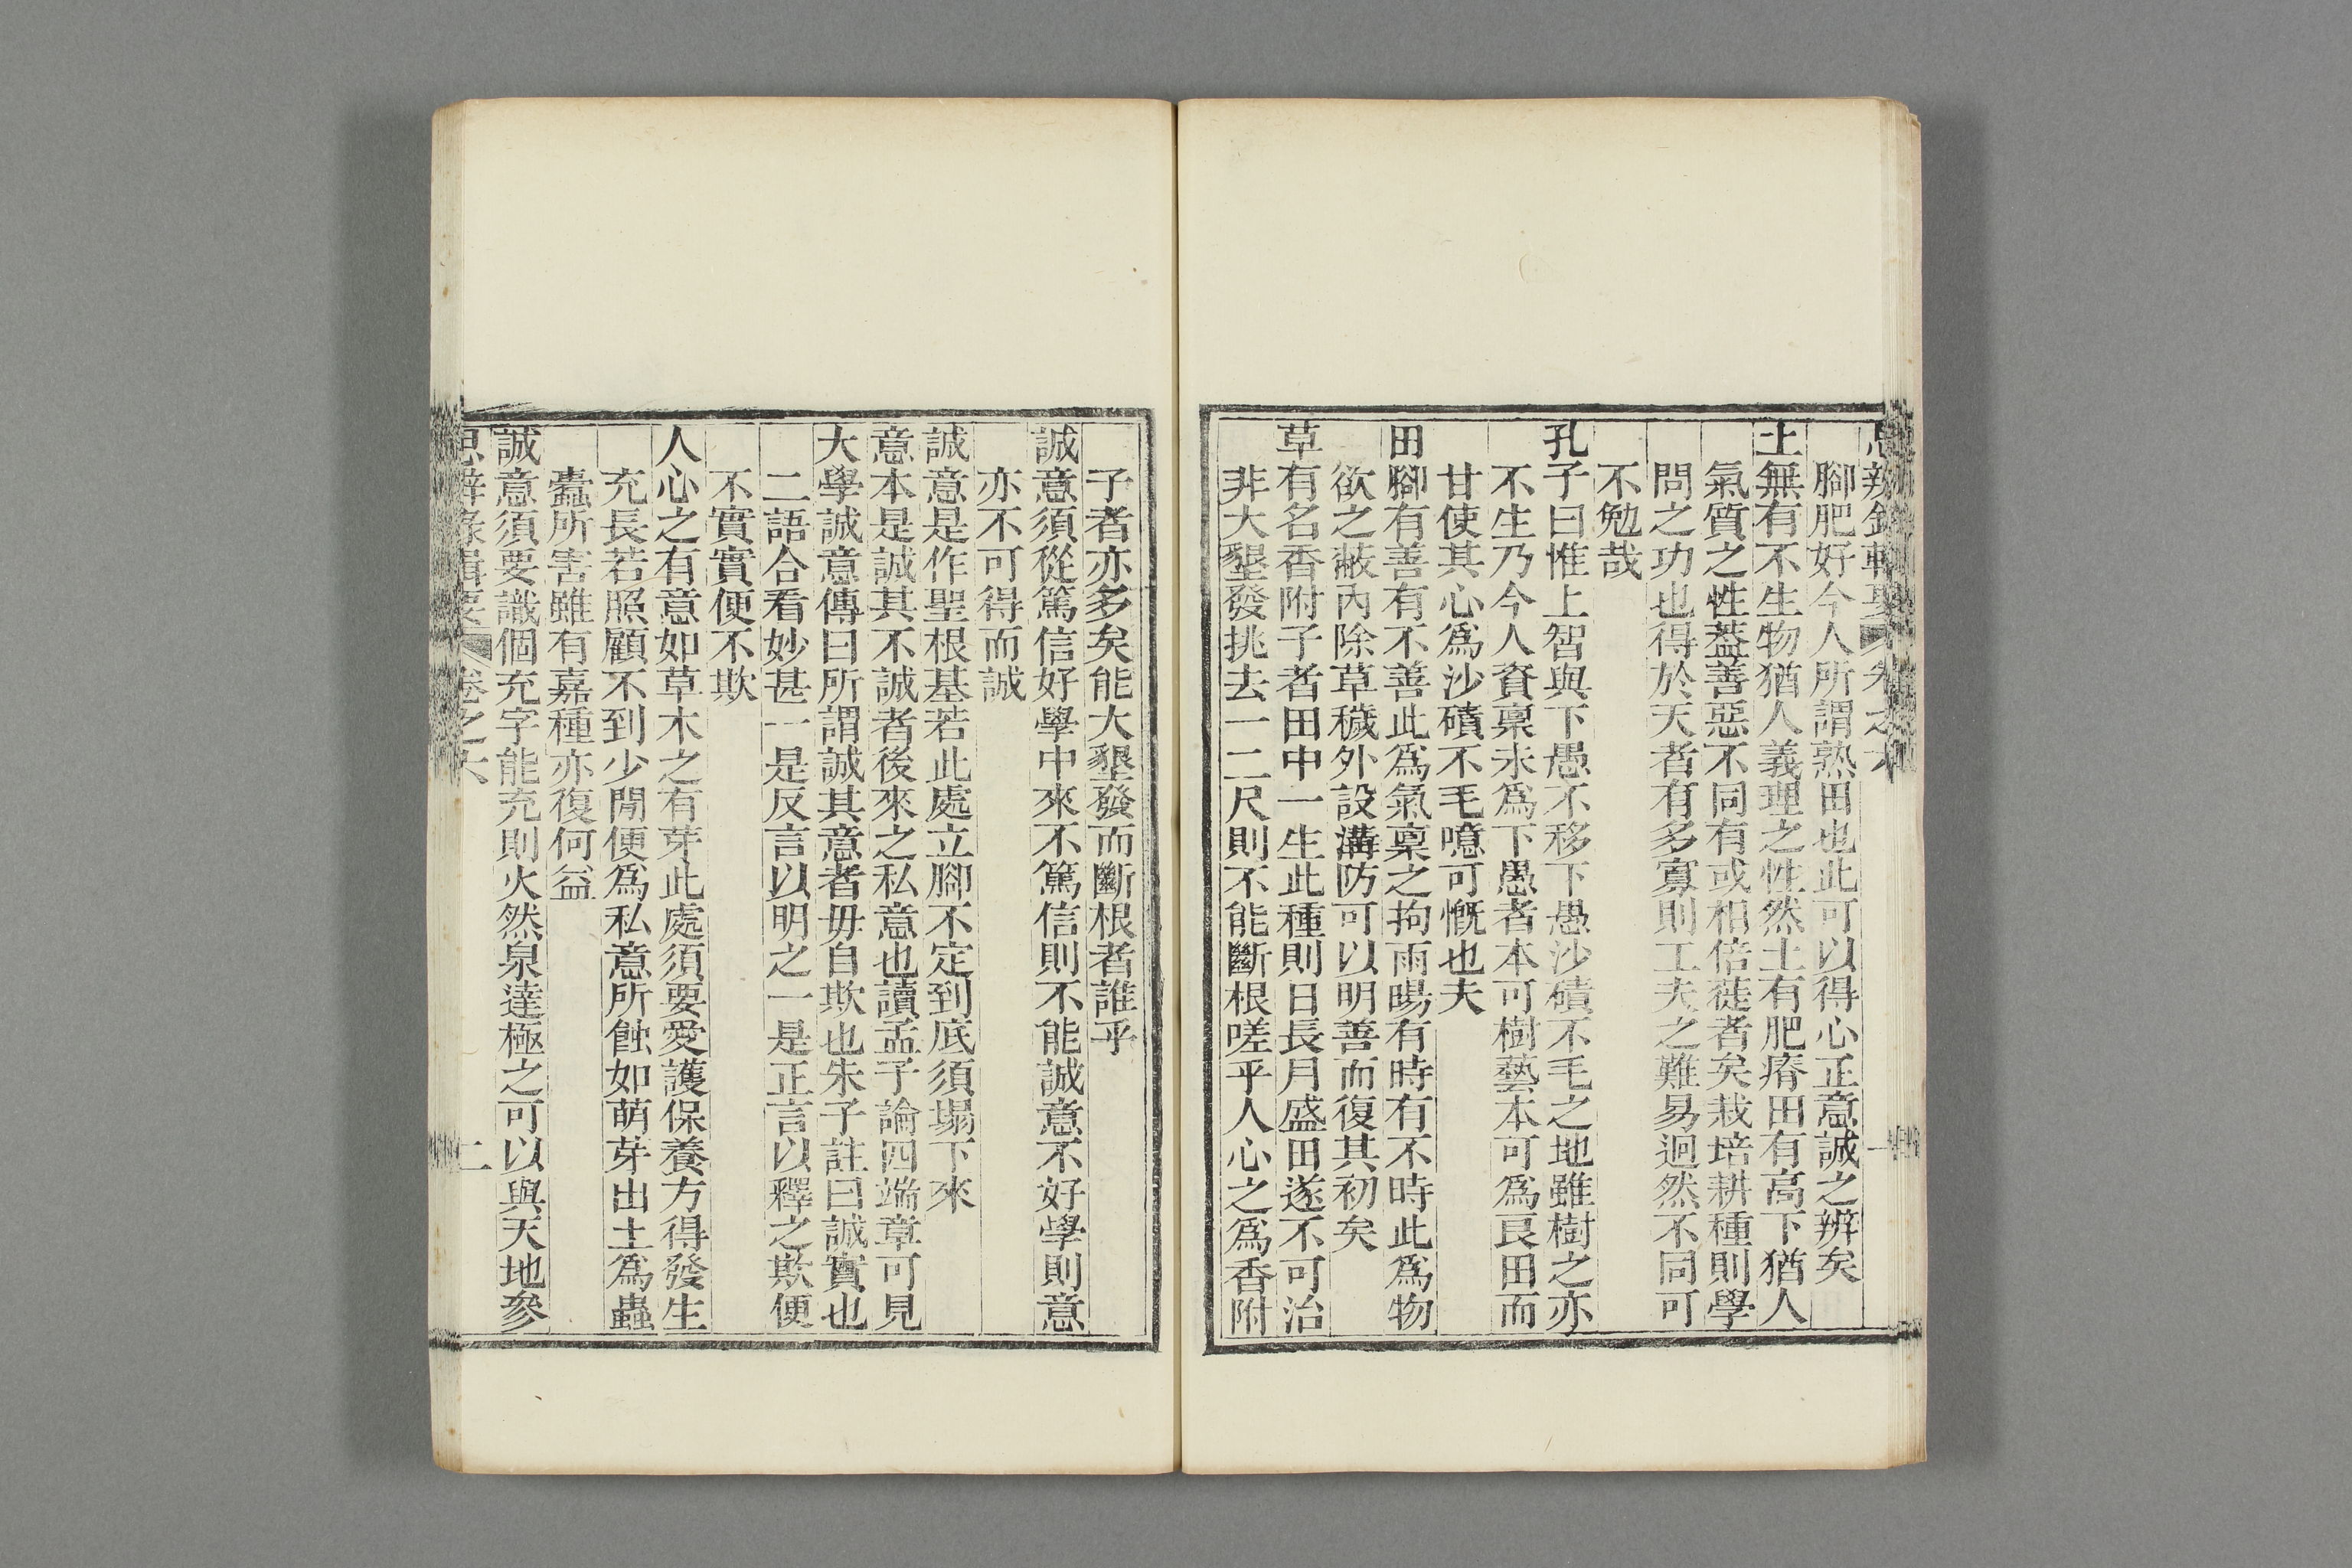 腳肥好今人所謂熟田也此可以得心正意誠之辨矣
土無有不生物猶人義理之性然土有肥瘠田有高下猶人
氣質之性蓋善惡不同有或相倍蓰者矣栽培耕種則學
問之功也得於天者有多寡則工夫之難易迥然不同可
不勉哉
孔子曰惟上智與下愚不移下愚沙磧不毛之地雖樹之亦
不生乃今人資稟未為下愚者本可樹藝本可為良田而
甘使其心為沙磧不毛噫可慨也夫
田腳有善有不善此為氣稟之拘雨暘有時有不時此為物
欲之蔽內除草穢外設溝防可以明善而復其初矣
草有名香附子者田中一生此種則日長月盛田遂不可治
非大墾發挑去一二尺則不能斷根嗟乎人心之為香附
子者亦多矣能大墾發而斷根者誰乎
誠意須從篤信好學中來不篤信則不能誠意不好學則意
亦不可得而誠
誠意是作聖根基若此處立腳不定到底須塌下來
意本是誠其不誠者後來之私意也讀孟子論四端章可見
大學誠意傳曰所謂誠其意者毋自欺也朱子註曰誠實也
二語合看妙甚一是反言以明之一是正言以釋之欺便
不實實便不欺
人心之有意如草木之有芽此處須要愛護保養方得發生
充長若照顧不到少閒便為私意所蝕如萌芽出土為蟲
蠹所害雖有嘉種亦復何益
誠意須要識個充字能充則火然泉達極之可以與天地參
思辨錄輯要 卷之六 二